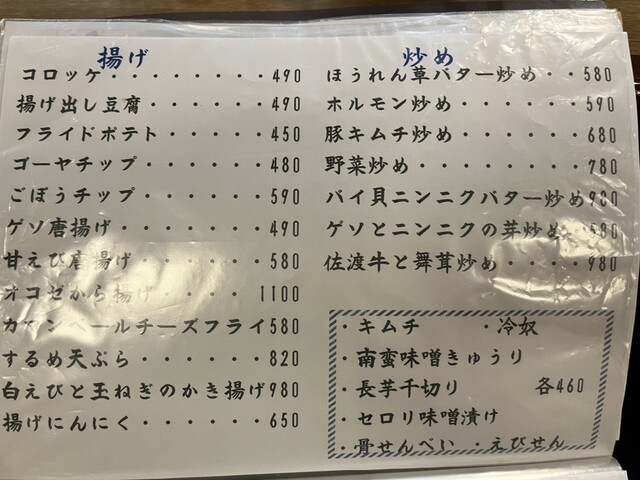 揚げ
コロッケ・・・・・・・・490
揚げ出し豆腐・・・・・・490
フライドポテト・・・・・450
ゴーヤチップ・・・・・・480
ごぼうチップ・・・・・・590
ゲソ唐揚げ・・・・・・・490
甘えび唐揚げ・・・・・・580
オコゼから揚げ・・・・・1100
カマンベールチーズフライ580
するめ天ぷら・・・・・・820
白えびと玉ねぎのかき揚げ980
揚げにんにく・・・・・・650
炒め
ほうれん草バター炒め・・580
ホルモン炒め・・・・・・590
豚キムチ炒め・・・・・・680
野菜炒め・・・・・・・・780
バイ貝ニンニクバター炒め980
ゲソとニンニクの芽炒め・580
佐渡牛と舞茸炒め・・・・980
・キムチ ・冷奴
・南蛮味噌きゅうり
・長芋千切り 各460
・セロリ味噌漬け
・骨せんべい ・えびせん